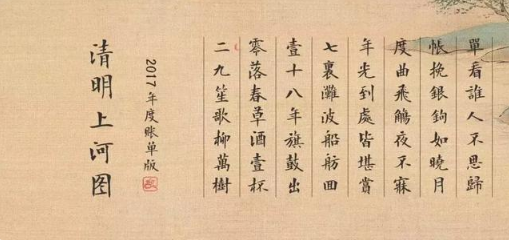 清明上河图
2017 年度账单版
二九笙歌柳萬樹
零落春草酒壹杯
壹十八年旗鼓出
七裏灘波船舫回
年光到處皆堪嘗
度曲飛觴夜不寐
帳挽銀鉤如曉月
單看誰人不思歸